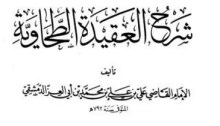 شرح العقيدة الطحاوية
تأليف
الإمام القاضي علي بن علي بن محمد بن أبي العز الدمشقي
المتوفى سنة ٧٩٢ هـ